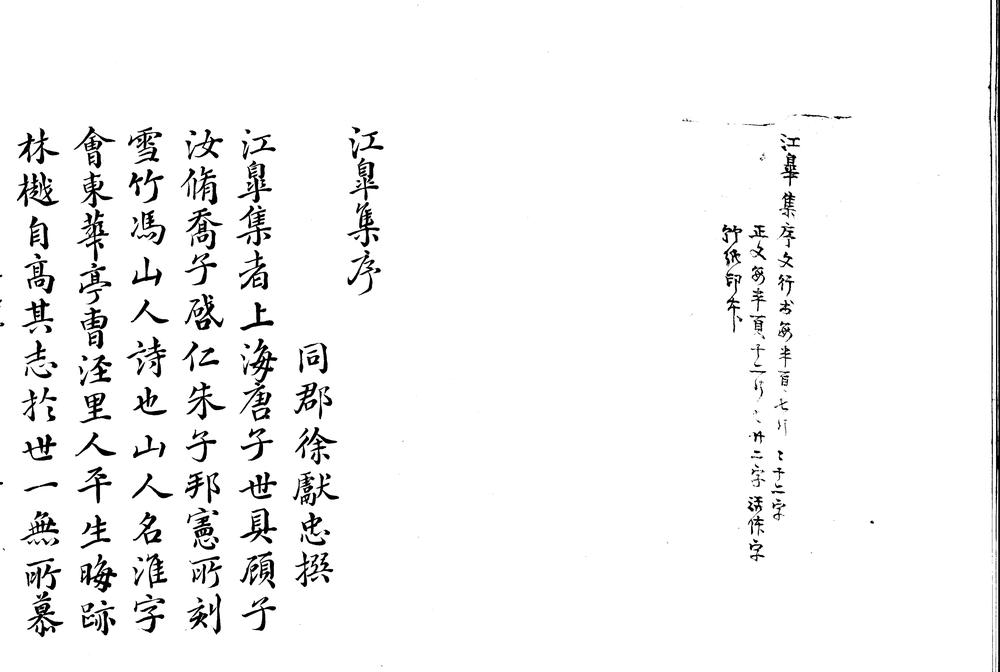 江臯集序文行书每半頁七行〻十二字
正文每半頁十二行〻廿二字 活体字
竹紙印本
江臯集序
同郡徐獻忠撰
江臯集者上海唐子世具顾子
汝脩喬子啓仁朱子邦憲所刻
雪竹馮山人詩也山人名淮字
會東華亭曹涇里人平生晦跡
林樾自高其志於世一無所慕